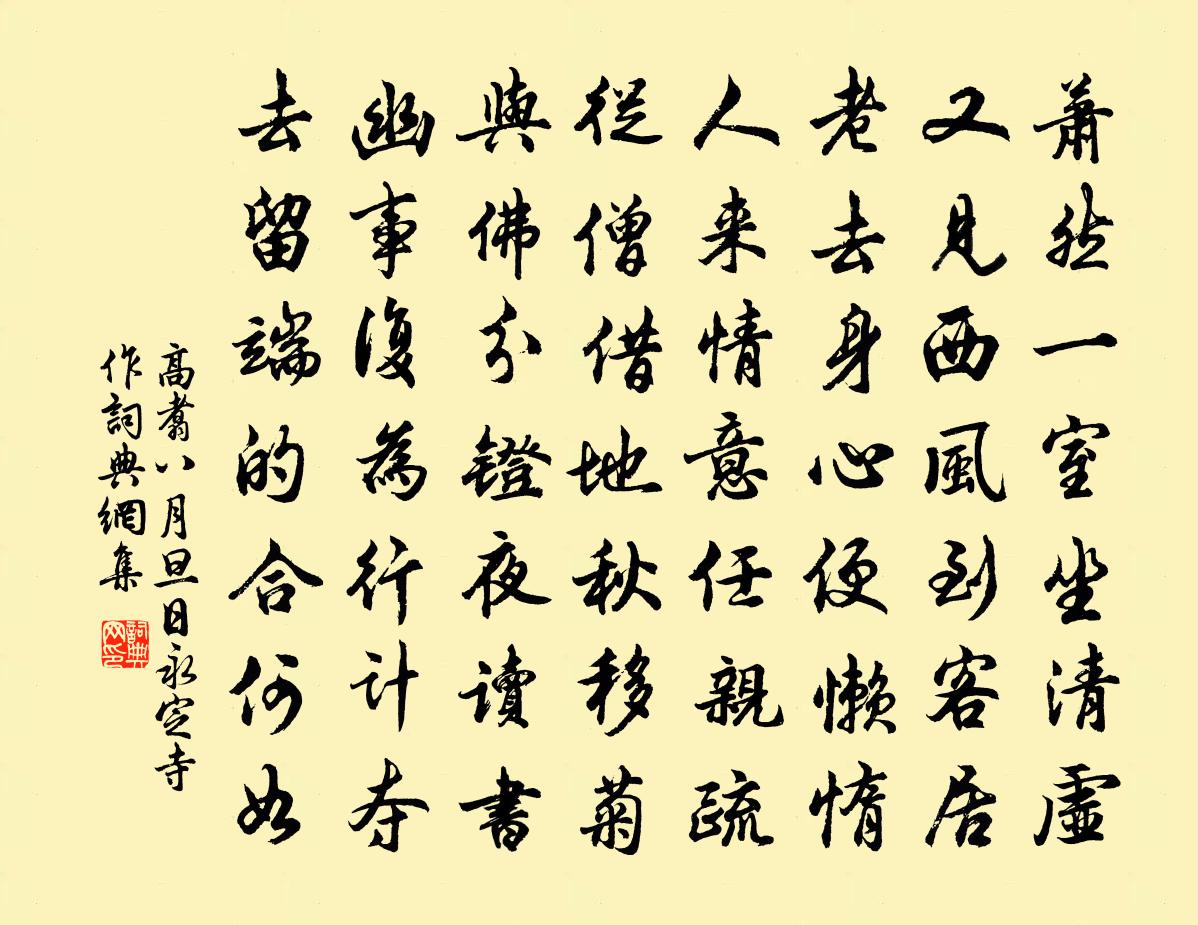 蕭然一室坐清虛
又見西風到客居
老去身心便懶惰
人来情意任親疏
從僧借地秋移菊
與佛分鐙夜讀書
幽事復為行計奪
去留端的合何如
高翥八月旦日永定寺
作詞典網集
詞典
网印